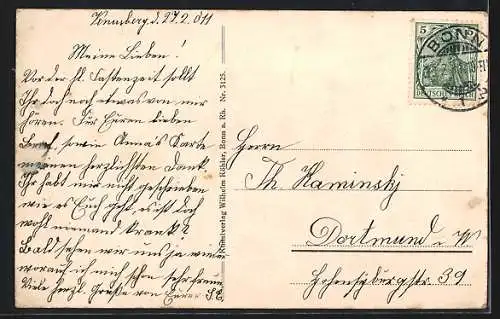 Venusberg, d. 27.2.011
Meine Lieben!
Vor der hl. Fastenzeit sollt
Ihr doch noch etwas von mir
hören. Für Euren lieben
Brief, sowie Anna's Karte
meinen herzlichsten Dank.
Ihr habt mir nicht geschrieben
wie es Euch geht, es ist doch
wohl niemand krank?
Bald sehen wir uns ja wieder
worauf ich mich schon sehr freue.
Viele herzl. Grüße von Eurer
Kunstverlag Wilhelm Köhler, Bonn a. Rh. Nr. 3125.
5
DEUTSCHES
BONN
Herrn
Th. Kaminsky
Dortmund i/W
Hohensyburgstr. 39